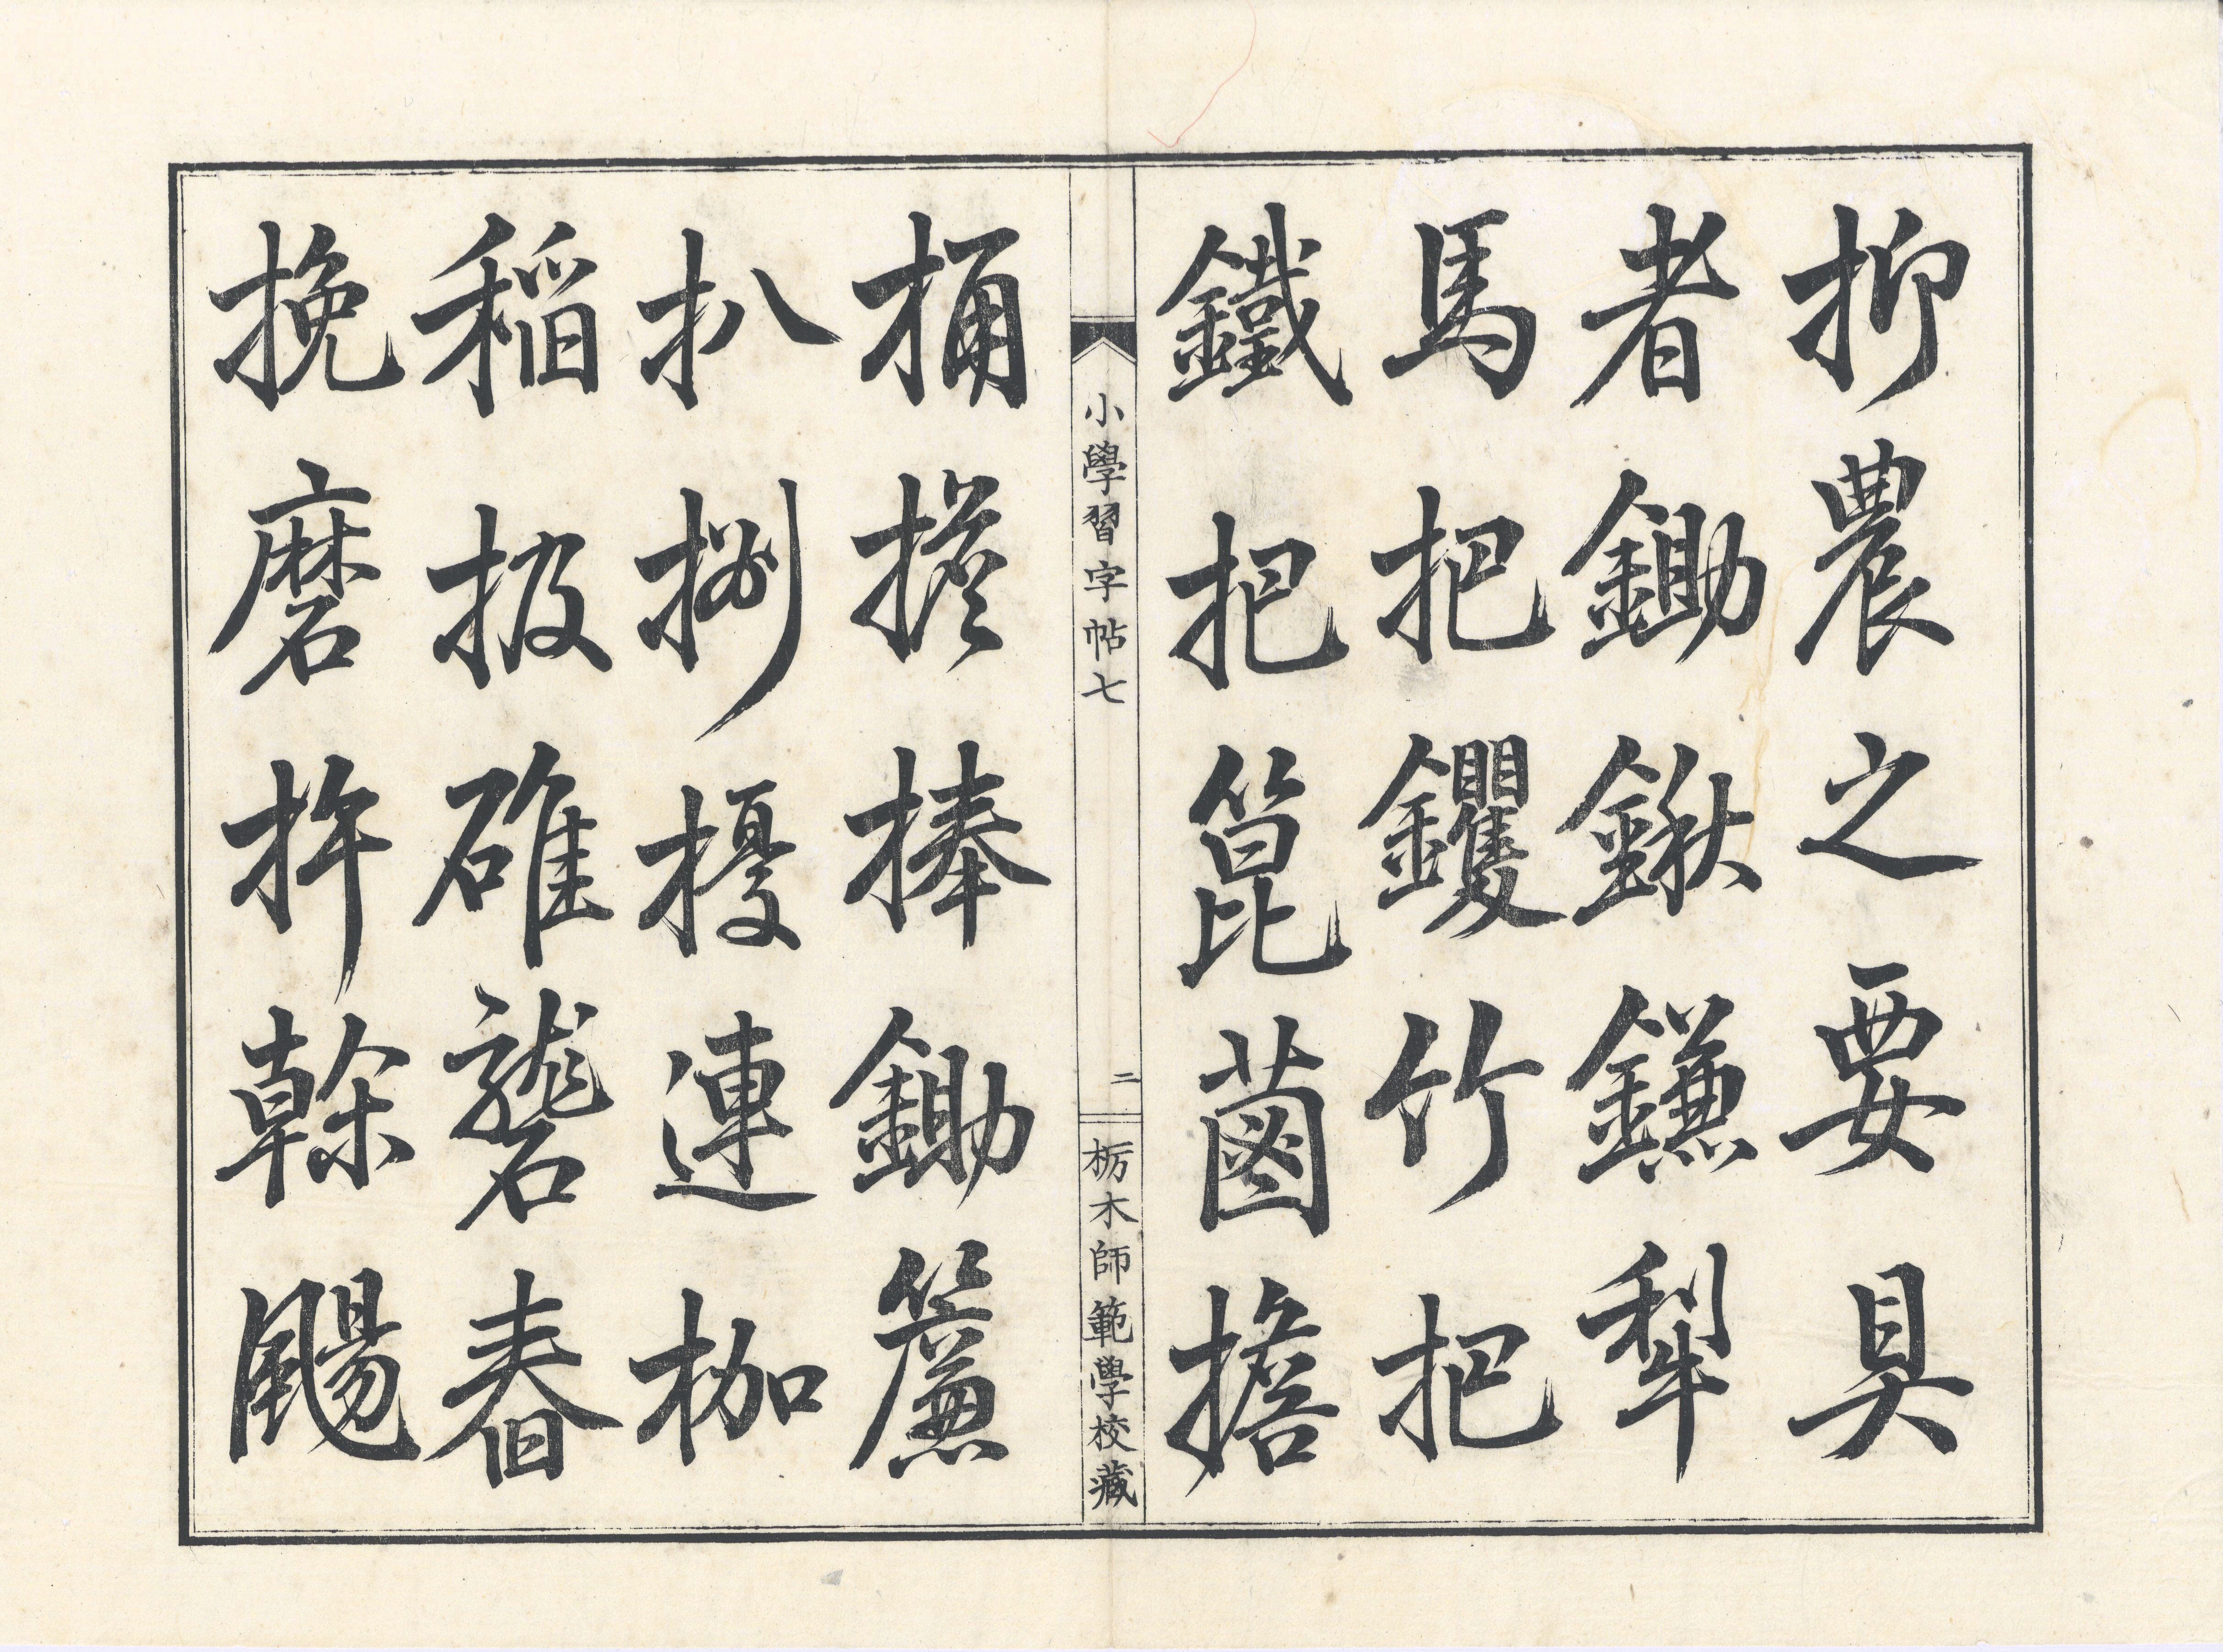 抑農之要具
者鋤鍬鎌犂
馬把钁竹把
鐵把箟擔
小學習字帖七
二
栃木師範學校藏
桶擔棒鋤簾
扒捌擾連枷
稻扱碓礱舂
挽磨杵榦颺